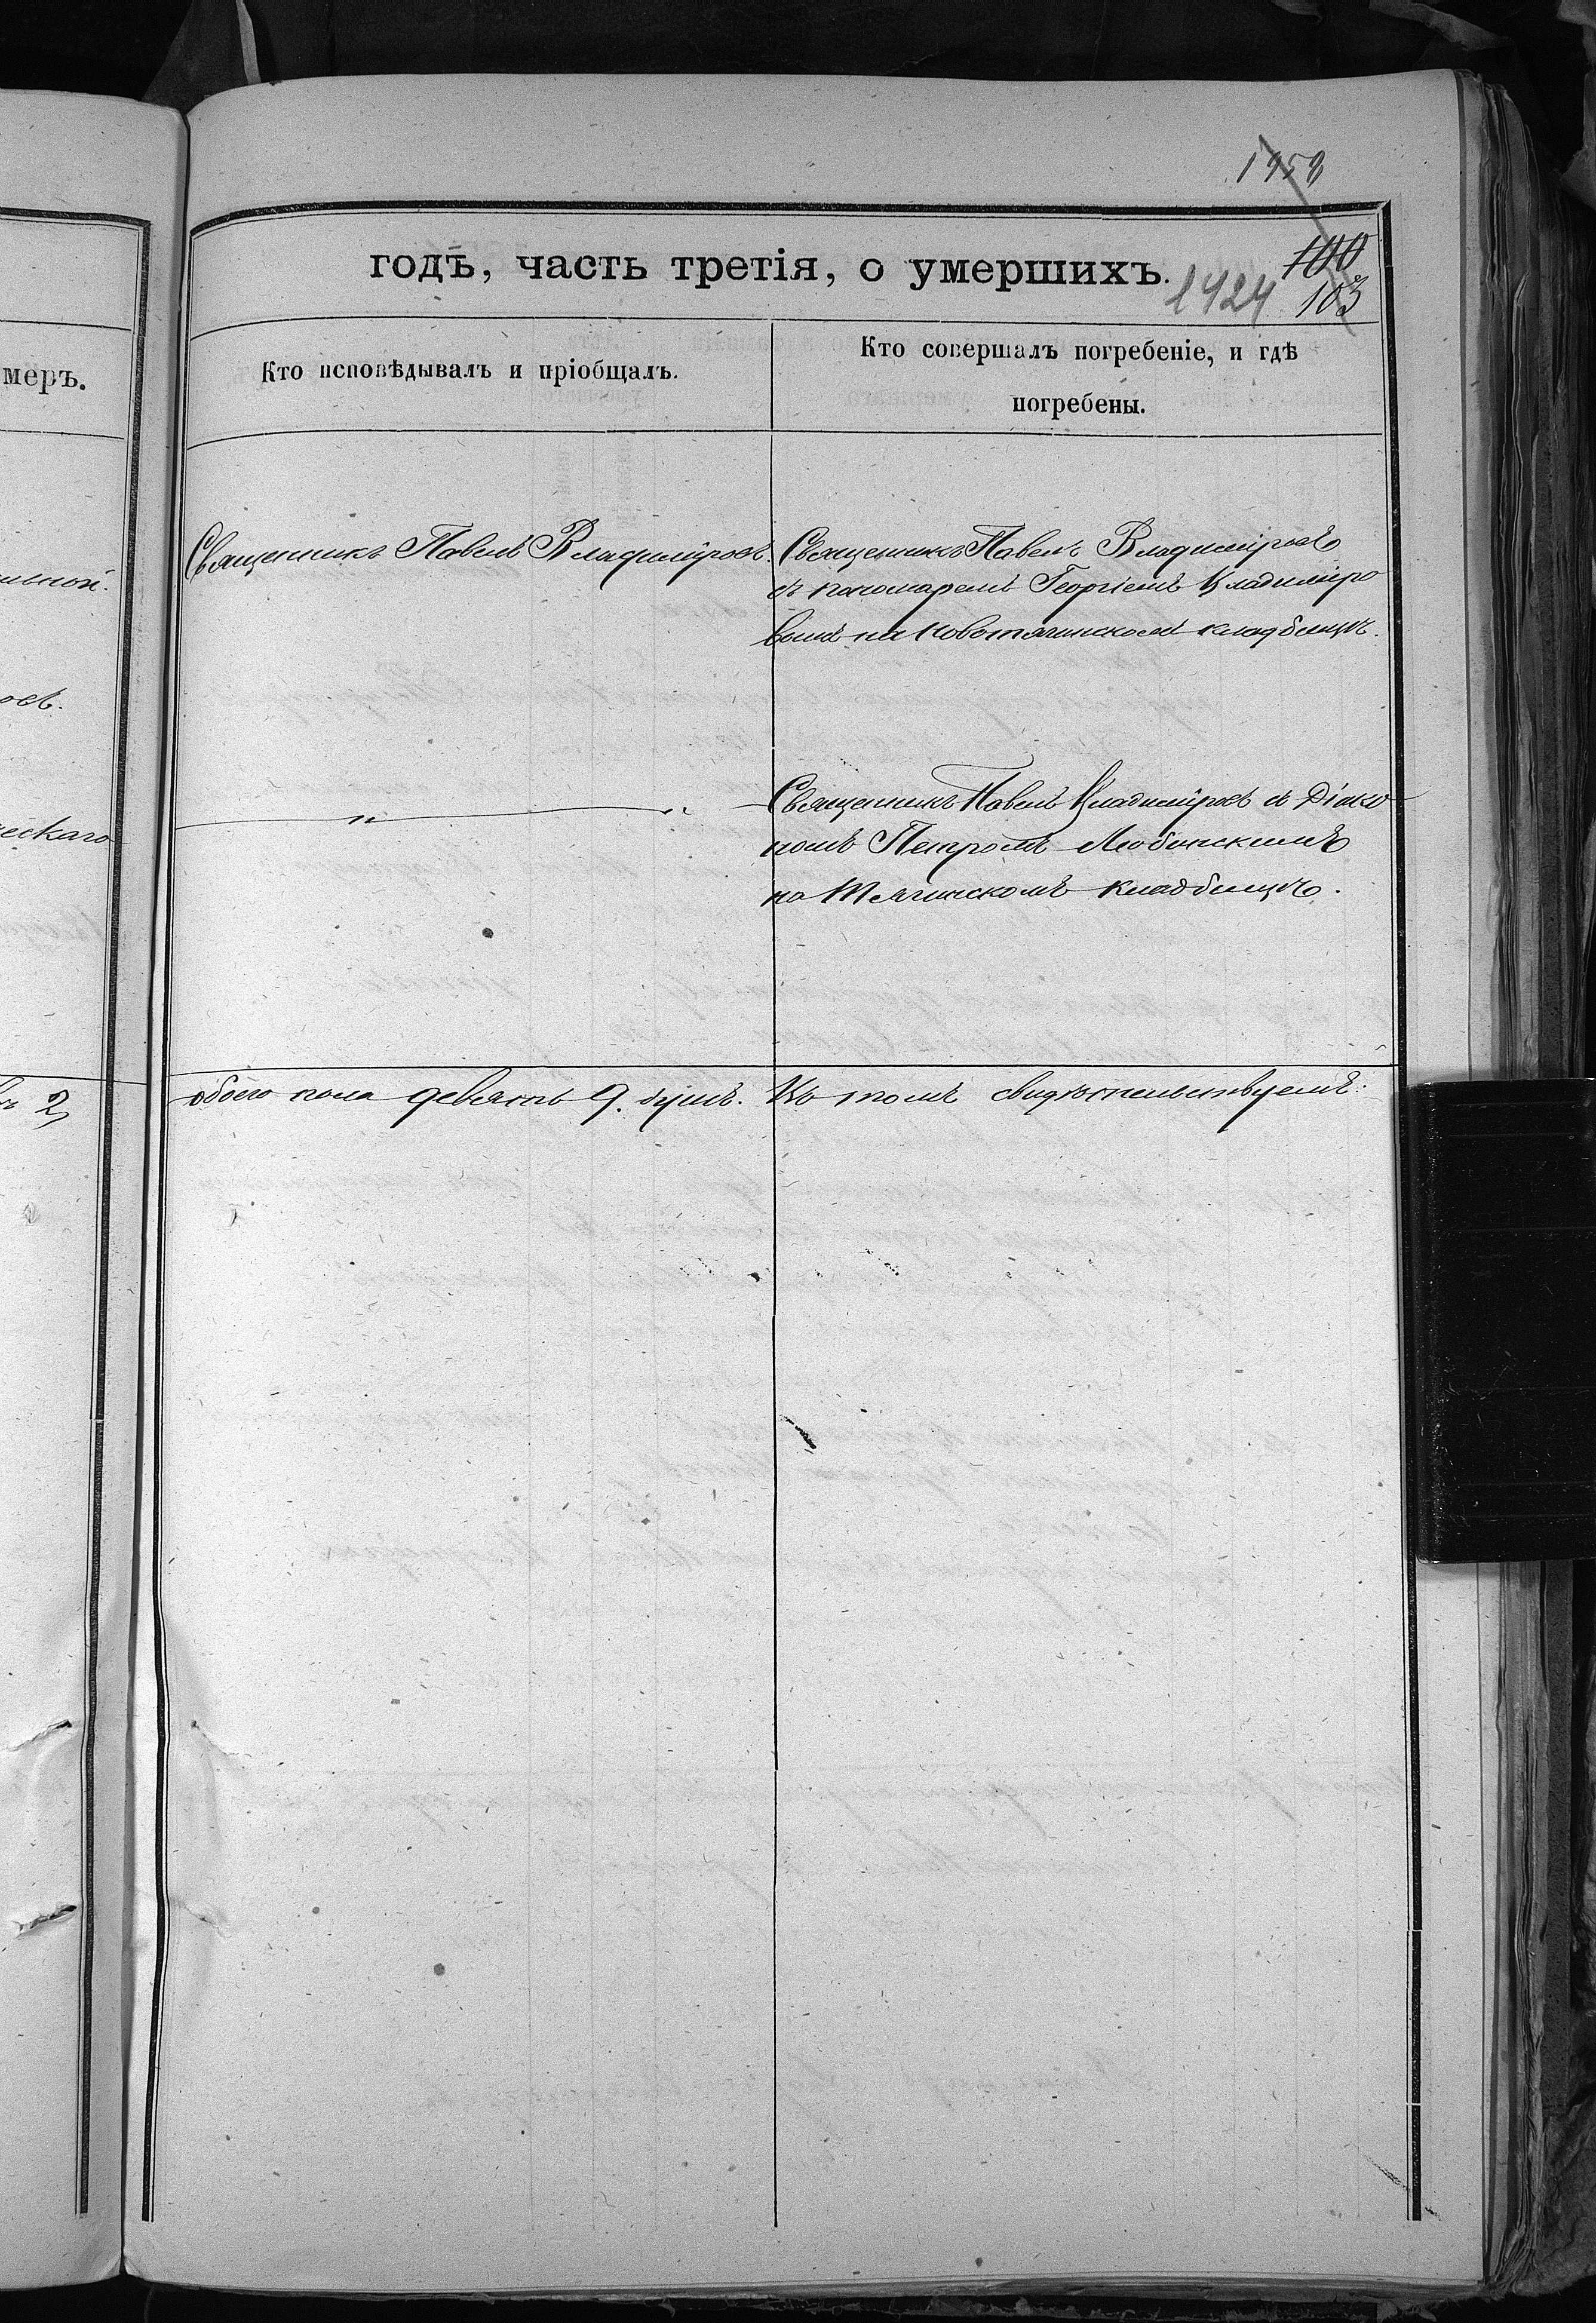 1959
годъ, часть третія, о умершихъ.
100
1424 103
меръ.
Кто исповѣдывалъ и пріобщалъ.
Кто совершалъ погребеніе, и гдѣ
погребены.
Священникъ Павелъ Владиміровъ.
Священникъ Павелъ Владиміровъ
съ пономаремъ Георгіемъ Владиміро
вымъ на Новотягинскомъ кладбищѣ.
овъ.
Священникъ Павелъ Владиміровъ съ Діако
номъ Петромъ
ческаго
на Тягинскомъ кладбищѣ.
2,
обоего пола девять 9. душъ. Въ томъ свидѣтельствуемъ: